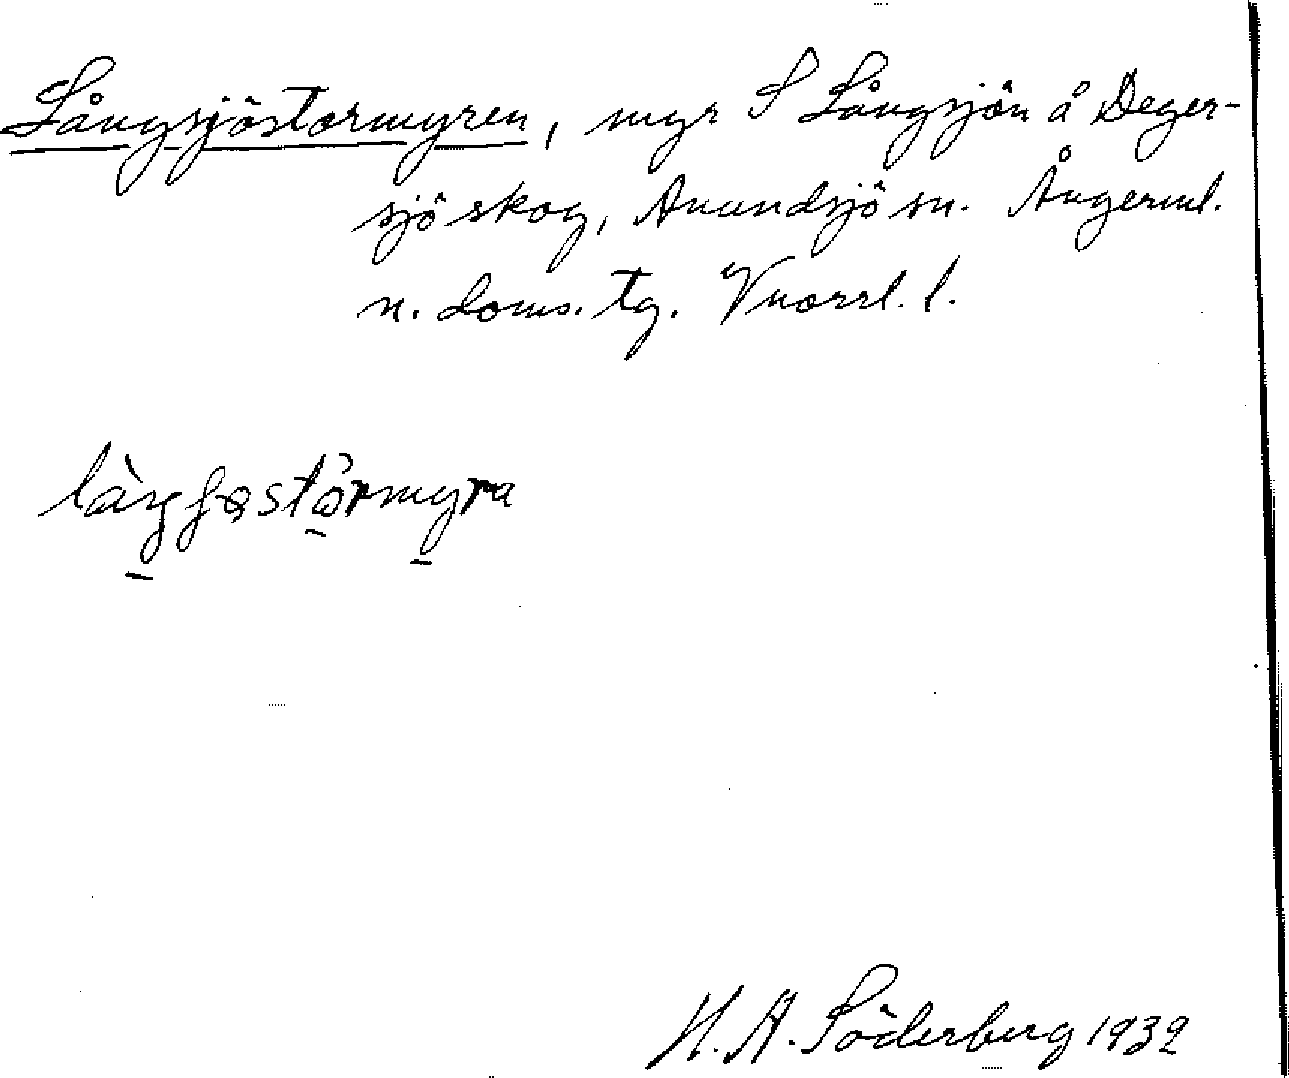 Långsjöstormyren, myr S Långsjön å Deger-
sjö skog, Anundsjö sn. Ångerml.
n. doms. tg. Vnorrl. l.
làŋʃøstórmyra
H. A. Söderberg 1932